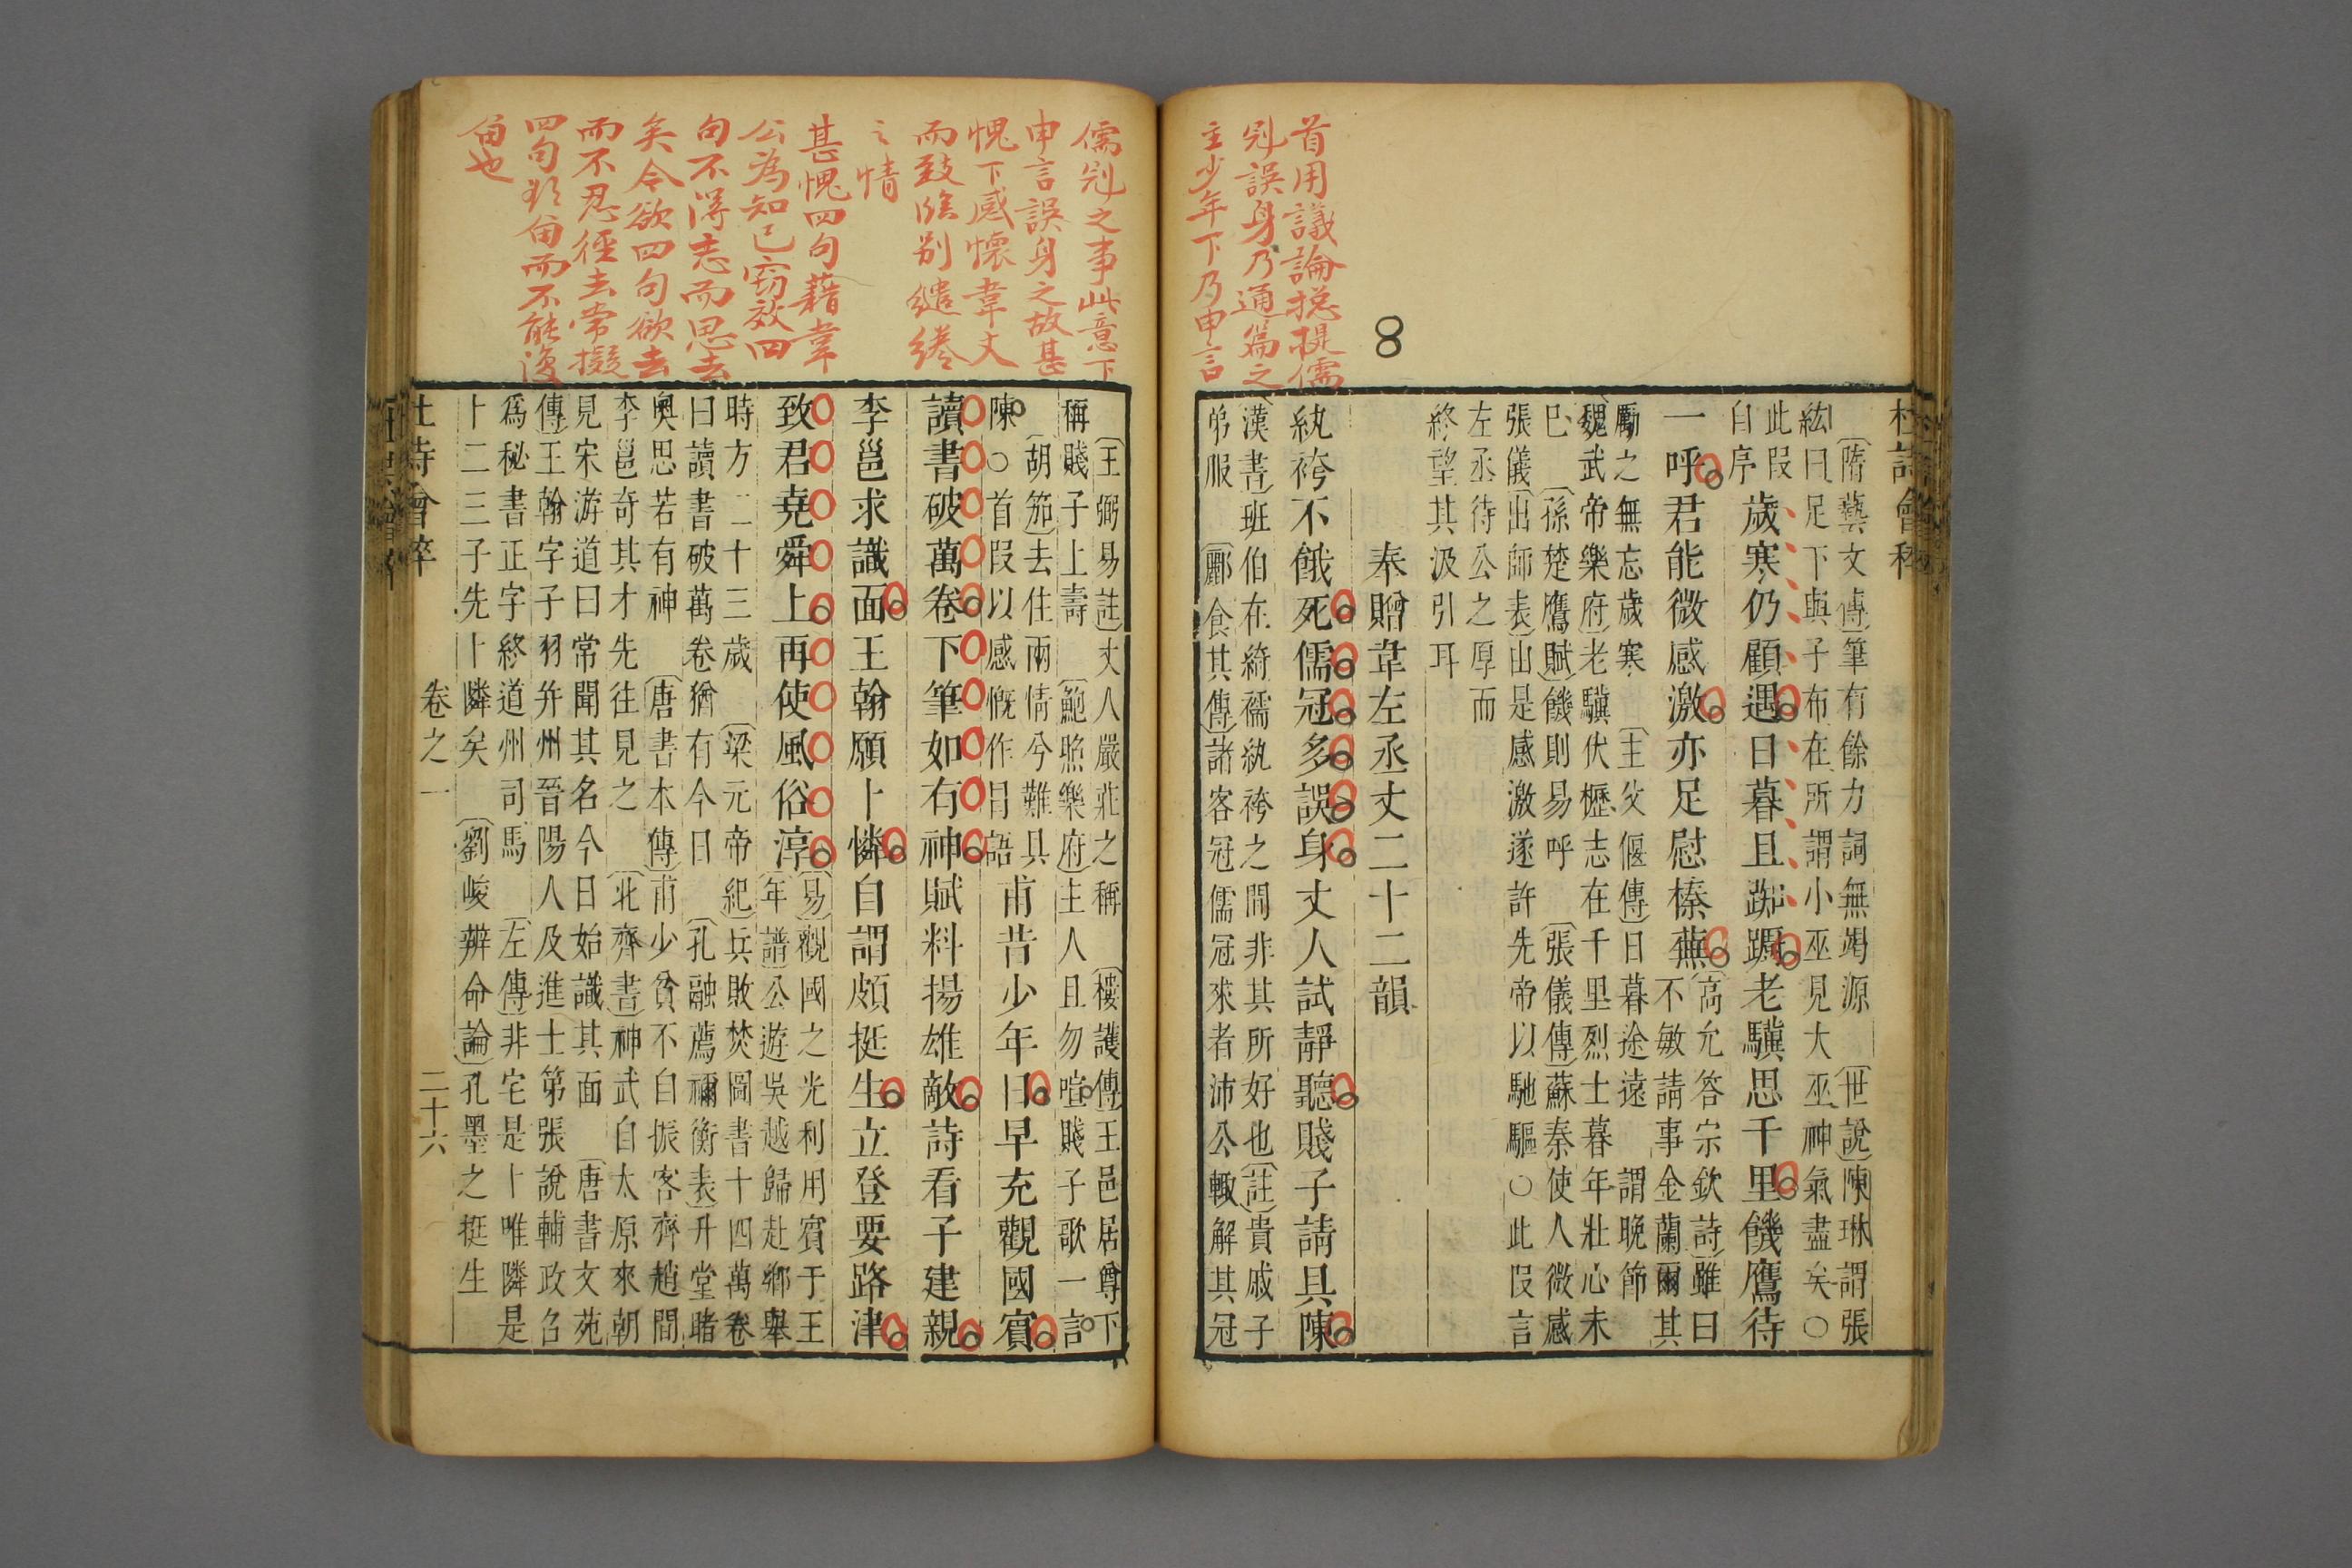 首用議論揔提儒
冠誤身乃通篇之
主少年下乃申言
8
杜詩會稡
〔隋藝文傳〕筆有餘力詞無竭源　〔世說〕陳琳謂張
紘曰足下與子布在所謂小巫見大巫神氣盡矣○
此段
自序
歲寒仍顧遇日暮且踟躕老驥思千里饑鷹待
一呼君能微感激亦足慰榛蕪
〔高允答宗欽詩〕雖曰
不敏請事金蘭爾其
勵之無忘歲寒　〔主父偃傳〕日暮途遠　謂晚節
〔魏武帝樂府〕老驥伏櫪志在千里烈士暮年壯心未
已　〔孫楚鷹賦〕饑則易呼　〔張儀傳〕蘇秦使人微感
張儀〔出師表〕由是感激遂許先帝以馳驅○此段言
左丞待公之厚而
終望其汲引耳
奉贈韋左丞丈二十二韻
紈袴不餓死儒冠多誤身丈人試靜聽賤子請具陳
〔漢書〕班伯在綺襦紈袴之間非其所好也〔註〕貴戚子
弟服　〔酈食其傳〕諸客冠儒冠來者沛公輙解其冠
儒冠之事此意下
申言誤身之故甚
愧下感懷韋丈
而致臨别繾綣
之情
甚愧四句藉韋
公為知己竊效四
句不得志而思去
矣今欲四句欲去
而不忍徑去常擬
四句
留也
〔王弼易註〕丈人嚴莊之稱　〔樓護傳〕王邑居尊下
稱賤子上壽　〔鮑照樂府〕主人且勿喧賤子歌一言
〔胡笳〕去住兩情兮難具
陳○首段以感慨作目語
甫昔少年日早充觀國賓
讀書破萬卷下筆如有神賦料揚雄敵詩看子建親
李邕求識面王翰願卜憐自謂頗挺生立登要路津
致君堯舜上再使風俗淳
〔易〕觀國之光利用賓于王
〔年譜〕公遊吳越歸赴鄉舉
時方二十三歲　〔梁元帝紀〕兵敗焚圖書十四萬卷
曰讀書破萬卷猶有今日　〔孔融薦禰衡表〕升堂睹
奧思若有神　〔唐書本傳〕甫少貧不自振客齊趙間
李邕奇其才先往見之　〔北齊書〕神武自太原來朝
見宋游道曰常聞其名今日始識其面　〔唐書文苑
傳〕王翰字子羽并州晉陽人及進士第張說輔政召
爲秘書正字終道州司馬　〔左傳〕非宅是卜唯隣是
卜二三子先卜隣矣　〔劉峻辨命論〕孔墨之挺生
杜詩會稡　卷之一　二十六